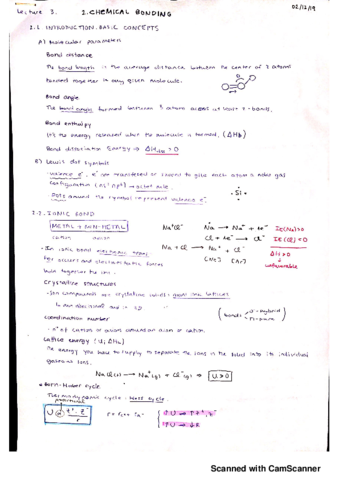 Lecture 3.
02/12/19
2. CHEMICAL BONDING
2.1 INTRODUCTION. BASIC CONCEPTS
A) Molecular parameters
Bond distance
The bond length is the average distance between the center of 2 atoms
bonded together in any given molecule.
Bond angle
The bond angle formed between 3 atoms across at least 2 bonds.
Bond enthalpy
It's the energy released when the molecule is formed, (ΔHf)
Bond dissociation Energy → ΔHdiss > 0
B) Lewis dot symbols
valence e-, e- are transferred or shared to give each atom a noble gas
configuration (ns2 np6) → octet rule.
Dots around the symbol represent valence e-.
· Si ·
2.2. IONIC BOND
METAL + NON-METAL
cation anion
Na+Cl-
Na → Na+ + 1e- IE(Na)>0
Cl + 1e- → Cl-
Na + Cl → Na+ + Cl-
[Ne] [Ar]
ΔH>0
unfavourable
- In ionic bond electrons trans
hold together the ions.
Crystalline structures
- Ion compounds are crystalline solids: giant ionic lattices
Coordination number
- nº of cations or anions around an anion or cation.
Lattice energy (U; ΔHu)
The energy you have to supply to separate the ions in the solid into its individual
gaseous ions.
NaCl(s) → Na+(g) + Cl-(g) → U>0
Born-Haber cycle
Thermodynamic cycle: Hess cycle.
Scanned with CamScanner